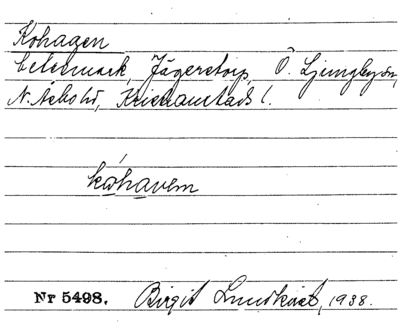 Kohagen
betesmark, Jägerstorp, Ö. Ljungbysn,
N. Åsbo hd, Kristianstads l.
kohaven
Nr 5498. Birgit Lundkvist, 1938.